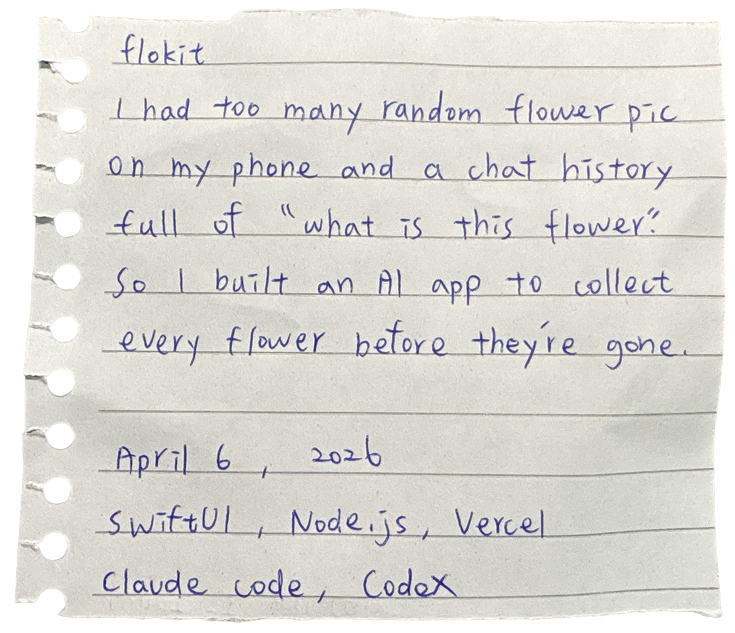 flokit
I had too many random flower pic
on my phone and a chat history
full of "what is this flower".
So I built an AI app to collect
every flower before they're gone.
April 6, 2026
SwiftUI, Node.js, Vercel
Claude code, Codex